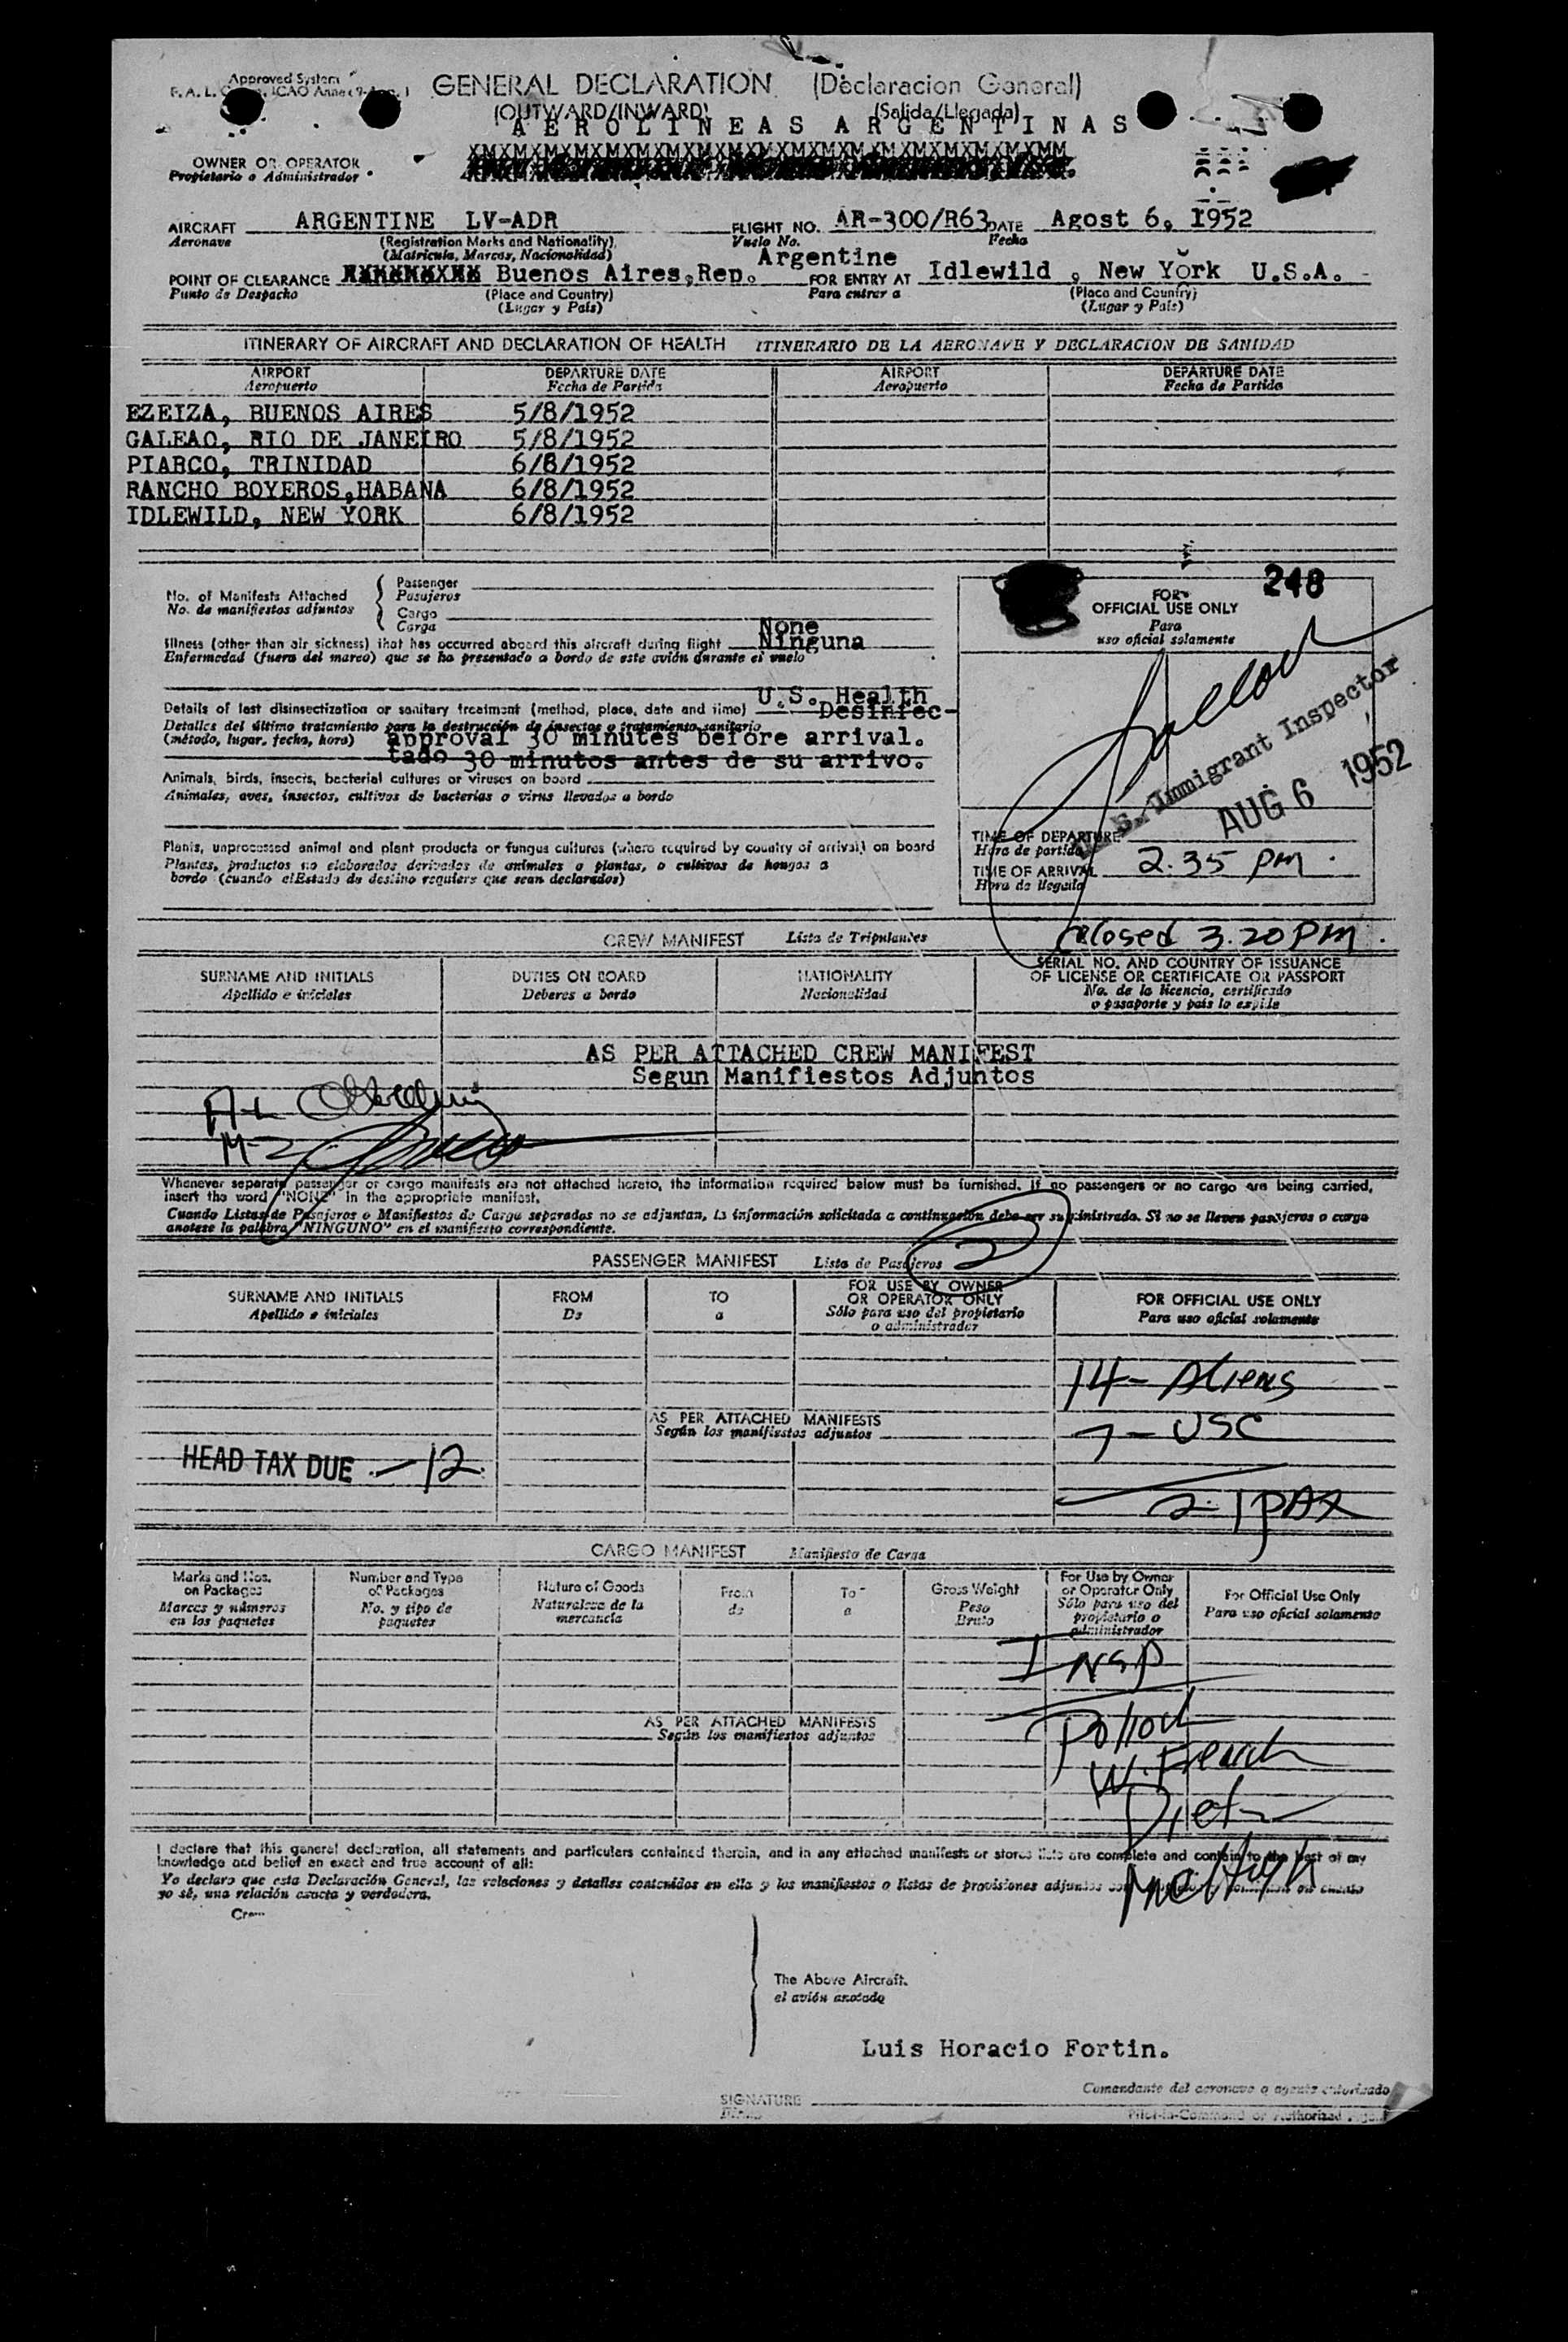 Approved System
GENERAL DECLARATION (Declaracion General)
(OUTWARD/INWARD) (Salida/Llegada)
AEROLINEAS ARGENTINAS
OWNER OR OPERATOR
Propietario o Administrador
AIRCRAFT ARGENTINE LV-ADR FLIGHT NO. AR-300/R63 DATE Agost 6, 1952
Aeronave (Registration Marks and Nationality) Vuelo No. Fecha
(Matricula, Marcas, Nacionalidad) Argentine
POINT OF CLEARANCE Buenos Aires,Rep. FOR ENTRY AT Idlewild , New York U.S.A.
Punto de Despacho (Place and Country) Para entrar a (Place and Country)
(Lugar y País) (Lugar y País)
ITINERARY OF AIRCRAFT AND DECLARATION OF HEALTH ITINERARIO DE LA AERONAVE Y DECLARACION DE SANIDAD
AIRPORT DEPARTURE DATE AIRPORT DEPARTURE DATE
Aeropuerto Fecha de Partida Aeropuerto Fecha de Partida
EZEIZA, BUENOS AIRES 5/8/1952
GALEAO, RIO DE JANEIRO 5/8/1952
PIARCO, TRINIDAD 6/8/1952
RANCHO BOYEROS,HABANA 6/8/1952
IDLEWILD, NEW YORK 6/8/1952
248
No. of Manifests Attached Passenger
No. de manifiestos adjuntos Pasajeros
Cargo
Carga
FOR
OFFICIAL USE ONLY
Para
uso oficial solamente
None
Illness (other than air sickness) that has occurred aboard this aircraft during flight Ninguna
Enfermedad (fuera del mareo) que se ha presentado a bordo de este avión durante el vuelo
U.S. Health
Details of last disinsectization or sanitary treatment (method, place, date and time) Desinfec-
Detalles del último tratamiento para la destrucción de insectos o tratamiento sanitario
(método, lugar, fecha, hora) approval 30 minutes before arrival.
tado 30 minutos antes de su arrivo.
Animals, birds, insects, bacterial cultures or viruses on board
Animales, aves, insectos, cultivos de bacterias o virus llevados a bordo
Immigrant Inspector
AUG 6 1952
Plants, unprocessed animal and plant products or fungus cultures (where required by country of arrival) on board
Plantas, productos no elaborados derivados de animales o plantas, o cultivos de hongos a
bordo (cuando el Estado de destino requiere que sean declarados)
TIME OF DEPARTURE
Hora de partida
2.35 pm.
TIME OF ARRIVAL
Hora de llegada
closed 3.20 pm.
CREW MANIFEST Lista de Tripulantes
SURNAME AND INITIALS DUTIES ON BOARD NATIONALITY SERIAL NO. AND COUNTRY OF ISSUANCE
OF LICENSE OR CERTIFICATE OR PASSPORT
Apellido e iniciales Deberes a bordo Nacionalidad No. de la licencia, certificado
o pasaporte y país lo expide
AS PER ATTACHED CREW MANIFEST
Segun Manifiestos Adjuntos
Whenever separate passenger or cargo manifests are not attached hereto, the information required below must be furnished. If no passengers or no cargo are being carried,
insert the word "NONE" in the appropriate manifest.
Cuando Listas de Pasajeros o Manifiestos de Carga separados no se adjuntan, la información solicitada a continuación debe ser suministrada. Si no se lleven pasajeros o carga
anotese la palabra "NINGUNO" en el manifiesto correspondiente.
2
PASSENGER MANIFEST Lista de Pasajeros
SURNAME AND INITIALS FROM TO FOR USE BY OWNER FOR OFFICIAL USE ONLY
OR OPERATOR ONLY
Apellido e iniciales De a Sólo para uso del propietario Para uso oficial solamente
o administrador
14- Aliens
AS PER ATTACHED MANIFESTS
Según los manifiestos adjuntos
7- USC
HEAD TAX DUE - 12
21 PAX
CARGO MANIFEST Manifiesto de Carga
Marks and Nos. Number and Type Nature of Goods From To Gross Weight For Use by Owner For Official Use Only
on Packages of Packages or Operator Only
Marcas y números No. y tipo de Naturaleza de la de a Peso Sólo para uso del Para uso oficial solamente
en los paquetes paquetes mercancía Bruto propietario o
administrador
INSP
AS PER ATTACHED MANIFESTS
Según los manifiestos adjuntos
Pollock
W. French
I declare that this general declaration, all statements and particulars contained therein, and in any attached manifests or stores lists are complete and contain to the best of my
knowledge and belief an exact and true account of all:
Yo declaro que esta Declaración General, las relaciones y detalles contenidos en ella y los manifiestos o listas de provisiones adjuntos
yo sé, una relación exacta y verdadera.
The Above Aircraft.
el avión anotado
Luis Horacio Fortin.
Comandante del aeronave o agente autorizado
SIGNATURE
Pilot-in-Command or Authorized Agent